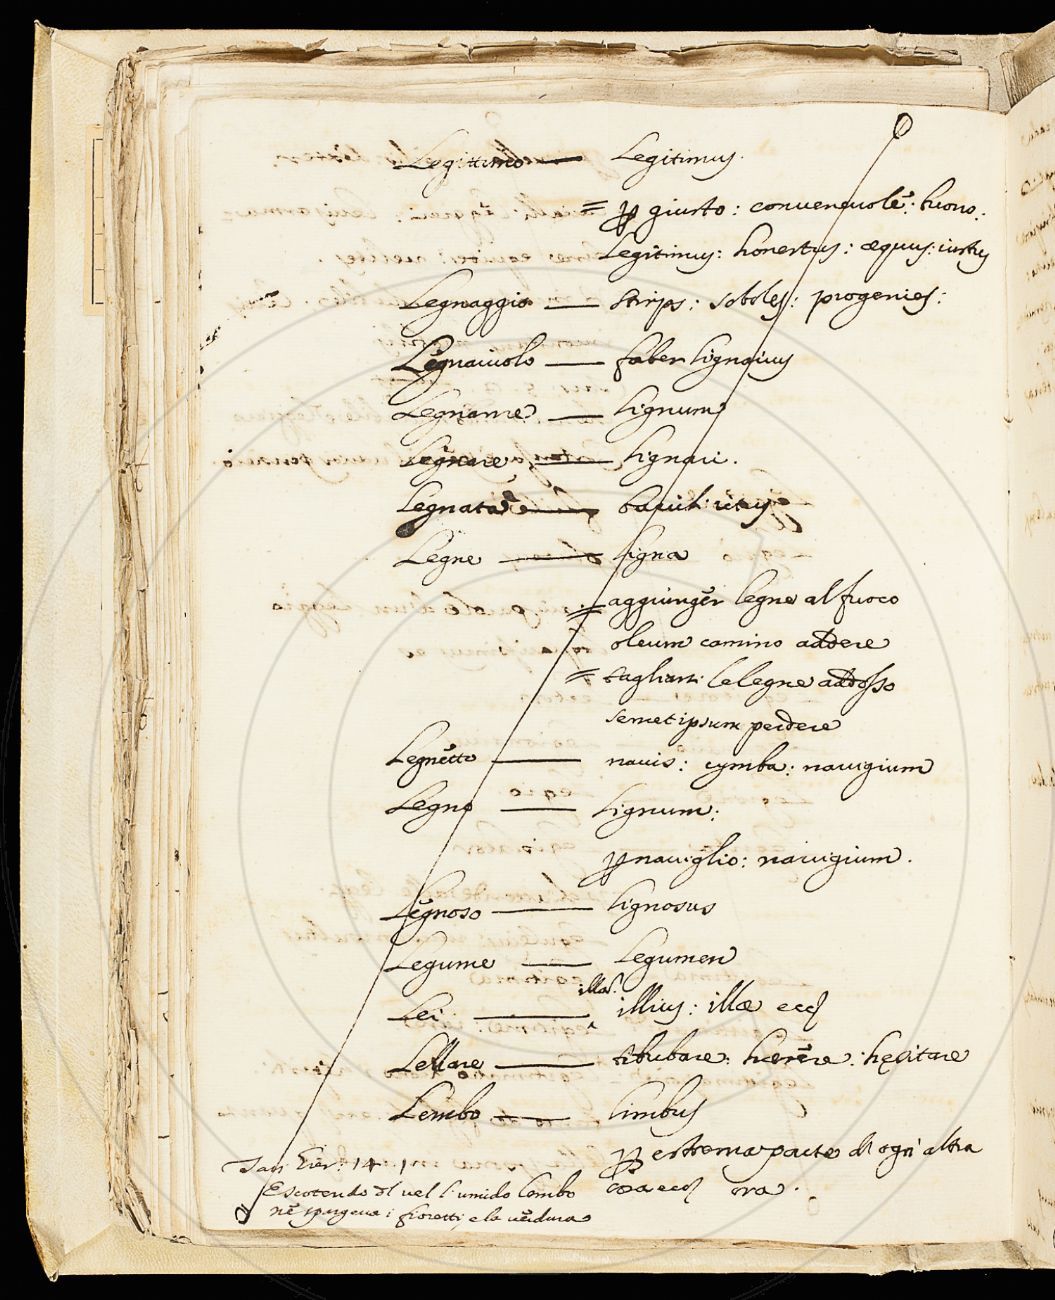 Legittimo — Legitimus.
= giusto: convenevole: buono:
Legitimus: honestus: æquus: iustus
Legnaggio — stirps: soboles: progenies:
Legnaiuolo — faber lignarius
Legname — lignum
Legnare — lignari.
Legnata — ictus
Legne — ligna
= aggiunger legne al fuoco
oleum camino addere
= tagliarsi le legne addosso
semetipsum perdere
Legnetto — navis: cymba: navigium
Legno — lignum:
naviglio: navigium.
Legnoso — lignosus
Legume — Legumen
illa:
Lei — illius: illæ ecc
Lellare — titubare: hærere: hęsitare
Lembo — limbus
estrema parte di ogni altra
Tass. Gier: 14. 1
cosa ecc ora.
E scotendo del vel l'umido lembo
ne spargeva i fioretti, e la verdura